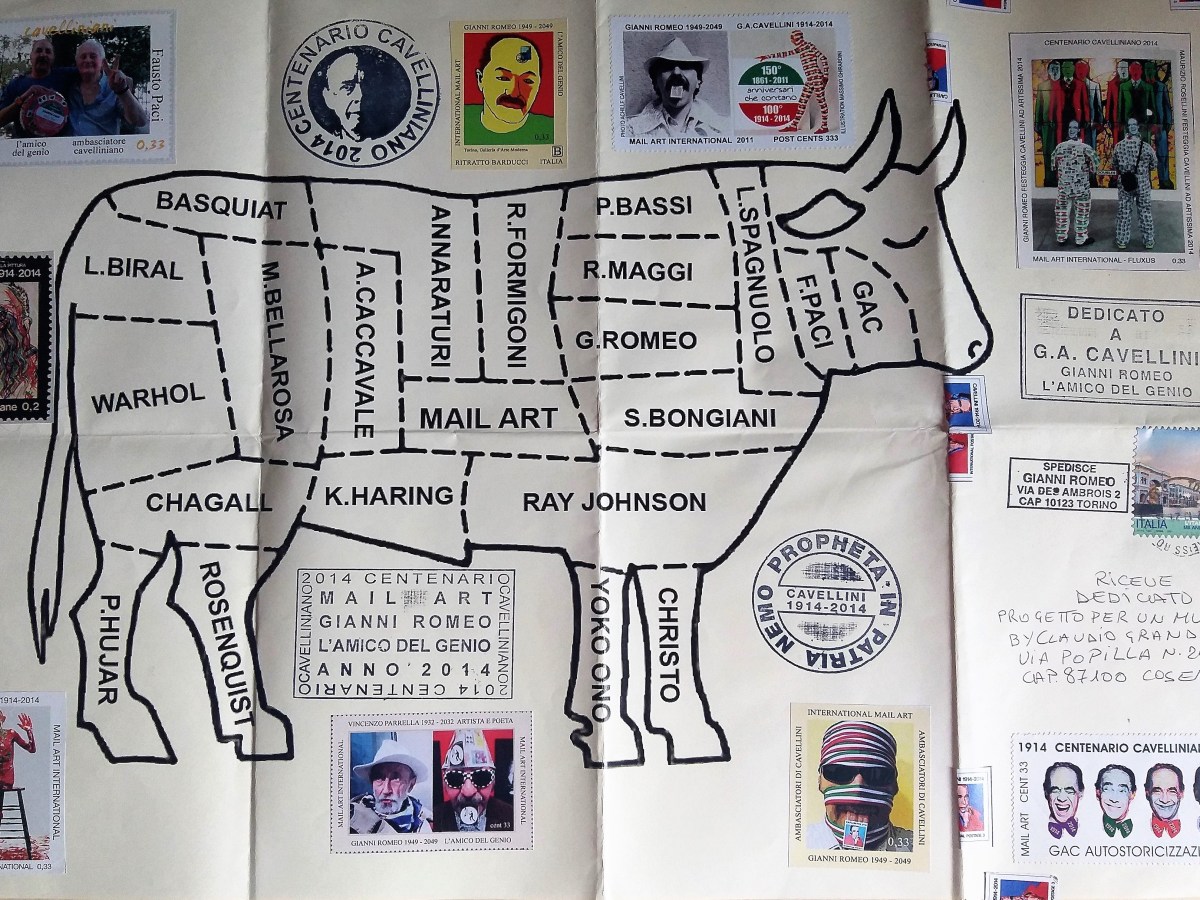 cavelliniani
Fausto Paci
l'amico del genio
ambasciatore cavelliniano
0,33
CENTENARIO CAVELLINIANO 2014
GIANNI ROMEO 1949 - 2049
INTERNATIONAL MAIL ART
L'AMICO DEL GENIO
0,33
Torino, Galleria d'Arte Moderna
RITRATTO BARDUCCI
ITALIA
GIANNI ROMEO 1949-2049
G.A.CAVELLINI 1914-2014
PHOTO ACHILLE CAVELLINI
150°
1861-2011
anniversari
che contano
100°
1914 - 2014
MAIL ART INTERNATIONAL 2011
POST CENTS 333
CENTENARIO CAVELLINIANO 2014
GIANNI ROMEO FESTEGGIA CAVELLINI AD ARTISSIMA 2014
MAURIZIO ROSELLINI FESTEGGIA CAVELLINI AD ARTISSIMA 2014
MAIL ART INTERNATIONAL - FLUXUS
0,33
BASQUIAT
L.BIRAL
M.BELLAROSA
A.CACCAVALE
ANNARATURI
R.FORMIGONI
P.BASSI
R.MAGGI
G.ROMEO
L.SPAGNUOLO
F.PACI
GAC
WARHOL
MAIL ART
S.BONGIANI
CHAGALL
K.HARING
RAY JOHNSON
P.HUJAR
ROSENQUIST
YOKO ONO
CHRISTO
1914-2014
ane 0,2
DEDICATO
A
G.A. CAVELLINI
GIANNI ROMEO
L'AMICO DEL GENIO
SPEDISCE
GIANNI ROMEO
VIA DES AMBROIS 2
CAP 10123 TORINO
ITALIA
RICEVE
DEDICATO
PROGETTO PER UN MU
BY CLAUDIO GRAND
VIA POPILIA N. 2
CAP. 87100 COSEN
2014 CENTENARIO
CAVELLINIANO
MAIL ART
GIANNI ROMEO
L'AMICO DEL GENIO
ANNO 2014
CAVELLINIANO
2014 CENTENARIO
NEMO PROPHETA IN PATRIA
CAVELLINI
1914-2014
VINCENZO PARRELLA 1932 - 2032 ARTISTA E POETA
MAIL ART INTERNATIONAL
MAIL ART INTERNATIONAL
cent 33
GIANNI ROMEO 1949 - 2049
L'AMICO DEL GENIO
INTERNATIONAL MAIL ART
AMBASCIATORI DI CAVELLINI
AMBASCIATORI DI CAVELLINI
0,33
GIANNI ROMEO 1949 - 2049
1914-2014
MAIL ART INTERNATIONAL
NATIONAL 0,33
1914 CENTENARIO CAVELLINIA
MAIL ART CENT 33
GAC AUTOSTORICIZZAZI